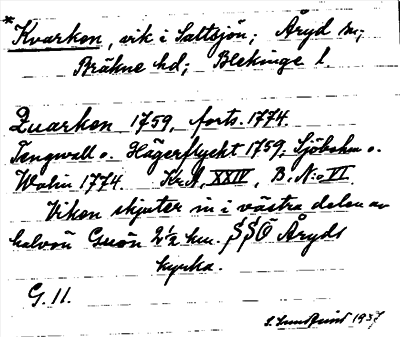 *Kvarken, vik i Saltsjön; Åryd sn;
Bräkne hd; Blekinge l.
Quarken 1759, forts. 1774.
Tengwall o. Hägerflycht 1759; Sjöbohm o.
Wolin 1774. Kr. A, XXIV, B. N:o VI.
Viken skjuter in i västra delen av
halvön Guön 2½ km. SSÖ Åryds
kyrka.
G. 11.
S. Lundquist 1937